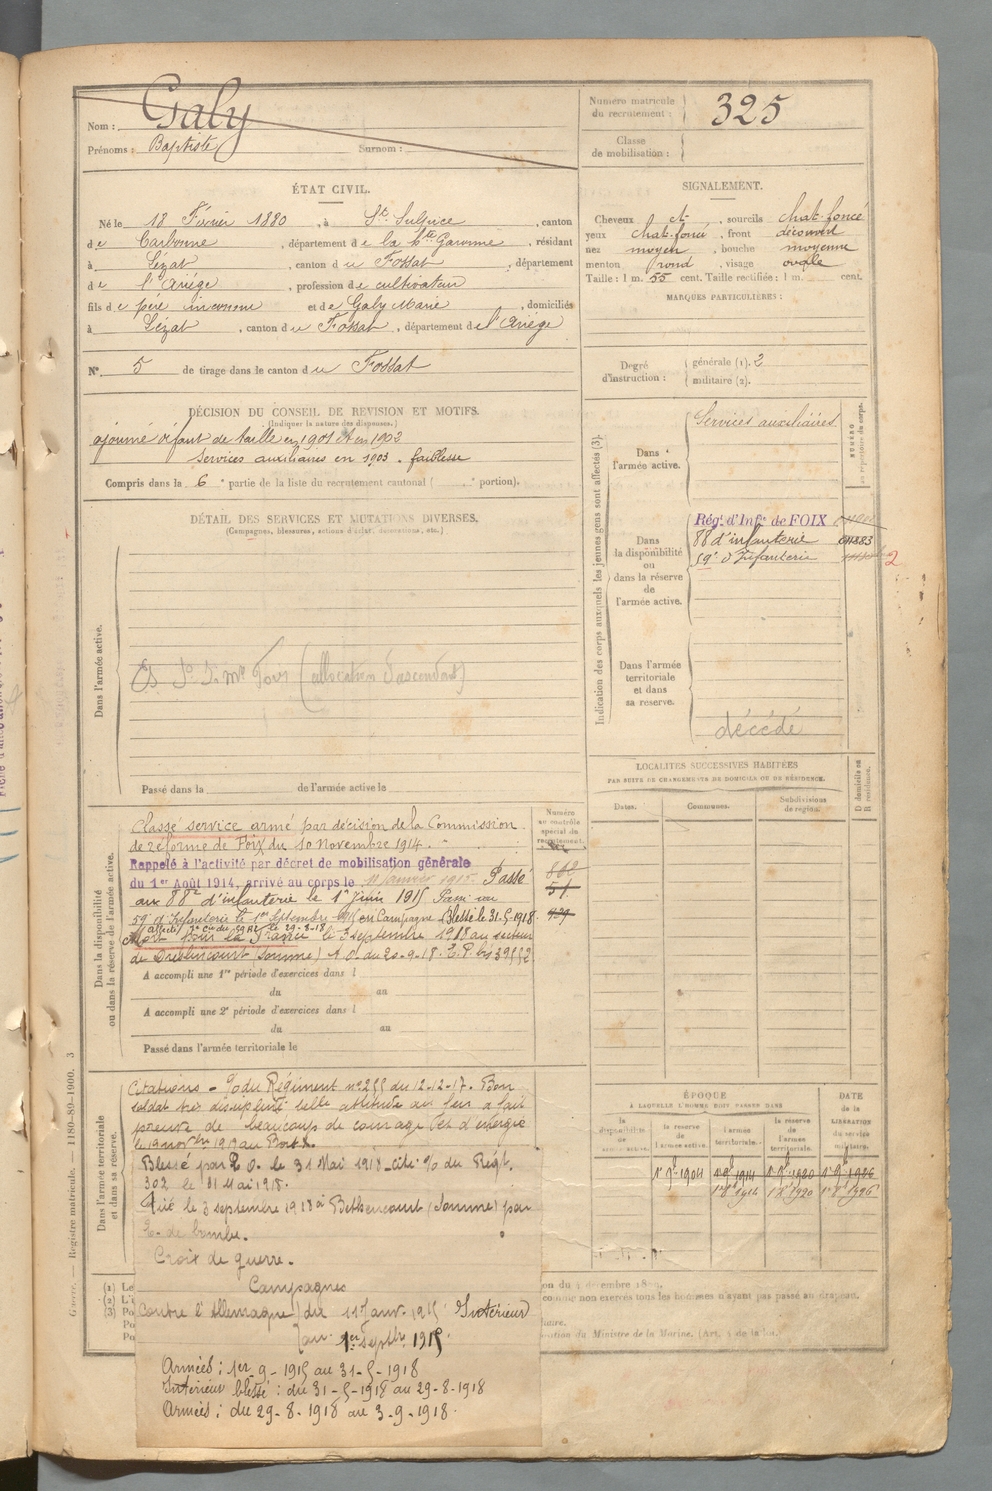 Nom : Galy
Prénoms : Baptiste Surnom :
Numéro matricule du recrutement : 325
Classe de mobilisation :
ÉTAT CIVIL.
Né le 18 Février 1880, à St. Sulpice, canton
de Carbonne, département de la Hte Garonne, résidant
à Lézat, canton du Fossat, département
de l'Ariége, profession de cultivateur
fils de père inconnu et de Galy Marie, domiciliés
à Lézat, canton du Fossat, département de l'Ariége
N° 5 de tirage dans le canton du Fossat
SIGNALEMENT.
Cheveux ch, sourcils chat. foncé
yeux chat. foncé, front découvert
nez moyen, bouche moyenne
menton rond, visage ovale
Taille : 1 m. 55 cent. Taille rectifiée : 1 m. cent.
MARQUES PARTICULIÈRES :
Degré d'instruction : générale (1). 2
militaire (2).
DÉCISION DU CONSEIL DE REVISION ET MOTIFS.
(Indiquer la nature des dispenses.)
ajourné défaut de taille en 1901 et en 1902
Services auxiliaires en 1903. faiblesse
Compris dans la 6e partie de la liste du recrutement cantonal ( e portion).
DÉTAIL DES SERVICES ET MUTATIONS DIVERSES.
(Campagnes, blessures, actions d'éclat, décorations, etc.)
Dans l'armée active.
(allocation d'ascendant)
Passé dans la de l'armée active le
Indication des corps auxquels les jeunes gens sont affectés (3).
NUMÉRO au répertoire du corps.
Dans l'armée active.
Services auxiliaires
Dans la disponibilité ou dans la réserve de l'armée active.
Rég. d'Infie de FOIX
88 d'infanterie
59e d'Infanterie
2
Dans l'armée territoriale et dans sa reserve.
décédé
LOCALITÉS SUCCESSIVES HABITÉES
PAR SUITE DE CHANGEMENTS DE DOMICILE OU DE RÉSIDENCE.
Dates.
Communes.
Subdivisions de région.
D domicile ou R résidence.
Dans la disponibilité ou dans la réserve de l'armée active.
Numéro au contrôle spécial du recrutement.
Classé service armé par décision de la Commission
de réforme de Foix du 10 Novembre 1914.
Rappelé à l'activité par décret de mobilisation générale
du 1er Août 1914, arrivé au corps le 11 Janvier 1915. Passé
au 88e d'infanterie le 1er Juin 1915 Passé au
59e d'Infanterie le 1er Septembre 1915 en Campagne Blessé le 31-5-1918
le 29-8-18
Mort pour la France le 3 septembre 1918 au secteur
de Dreslincourt (Somme) A. O. du 20-9-18. E. P. bis 39552
A accompli une 1re période d'exercices dans l
du au
A accompli une 2e période d'exercices dans l
du au
Passé dans l'armée territoriale le
Dans l'armée territoriale et dans sa réserve.
Citations - % du Régiment n° 255 du 12-12-17. Bon
soldat très discipliné belle attitude au feu a fait
preuve de beaucoup de courage et d'énergie
Blessé par E. O. le 31 Mai 1918 - cité % du Régt.
302 le 31 Mai 1918.
Tué le 3 septembre 1918 à Bethencourt (Somme) par
E. de bombe.
Croix de guerre.
Campagnes
Contre l'Allemagne du 11 Janv. 1915 Intérieur
au 1er Septbr 1915.
Armées : 1er 9-1915 au 31-5-1918
Intérieur blessé : du 31-5-1918 au 29-8-1918
Armées : du 29-8-1918 au 3-9-1918.
ÉPOQUE
À LAQUELLE L'HOMME DOIT PASSER DANS
la disponibilité de
la reserve de l'armée active.
l'armée territoriale.
la reserve de l'armée territoriale.
DATE de la LIBÉRATION du service militaire.
1er 9bre 1904
Guerre. — Registre matricule. — 1180-89-1900. 3
on du 4 décembre 1889,
comme non exercés tous les hommes n'ayant pas passé au drapeau.
du Ministre de la Marine. (Art. 4 de la loi.